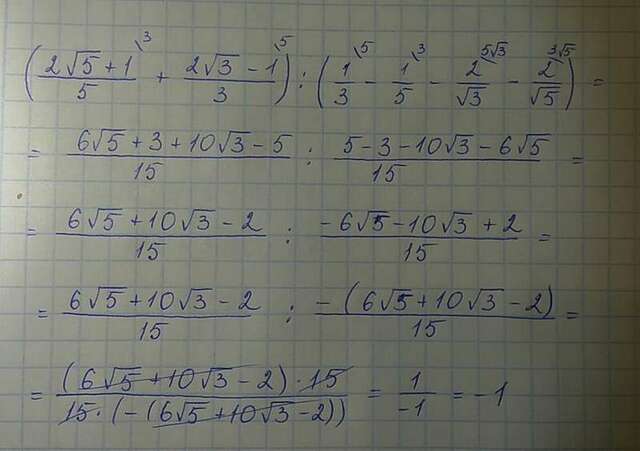 ( (2√5 + 1)/5 \3 + (2√3 - 1)/3 \5 ) : ( 1/3 \5 - 1/5 \3 - 2/√3 \5√3 - 2/√5 \3√5 ) =
= (6√5 + 3 + 10√3 - 5)/15 : (5 - 3 - 10√3 - 6√5)/15 =
= (6√5 + 10√3 - 2)/15 : (-6√5 - 10√3 + 2)/15 =
= (6√5 + 10√3 - 2)/15 : (-(6√5 + 10√3 - 2))/15 =
= ((6√5 + 10√3 - 2) · 15)/(15 · (-(6√5 + 10√3 - 2))) = 1/-1 = -1